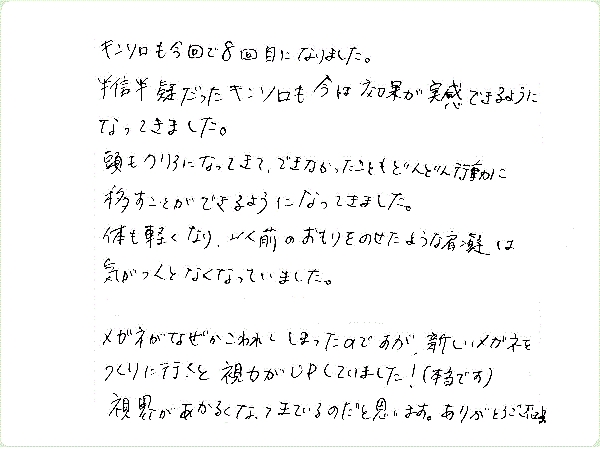 キンソロも今回で8回目になりました。
半信半疑だったキンソロも今は効果が実感できるように
なってきました。
頭もクリアになってきて、できなかったこともどんどん行動に
移すことができるようになってきました。
体も軽くなり、以前のおもりをのせたような肩凝は
気がつくとなくなっていました。
メガネがなぜかこわれてしまったのですが、新しいメガネを
つくりに行くと視力がUPしていました!(本当です)
視界があかるくなってきているのだと思います。ありがとうござ